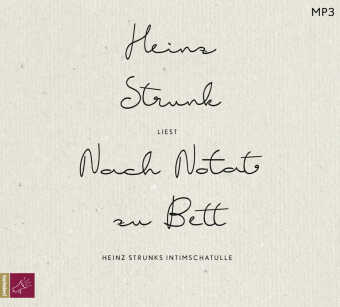 MP3
Heinz
Strunk
LIEST
Nach Notat
zu Bett
HEINZ STRUNKS INTIMSCHATULLE